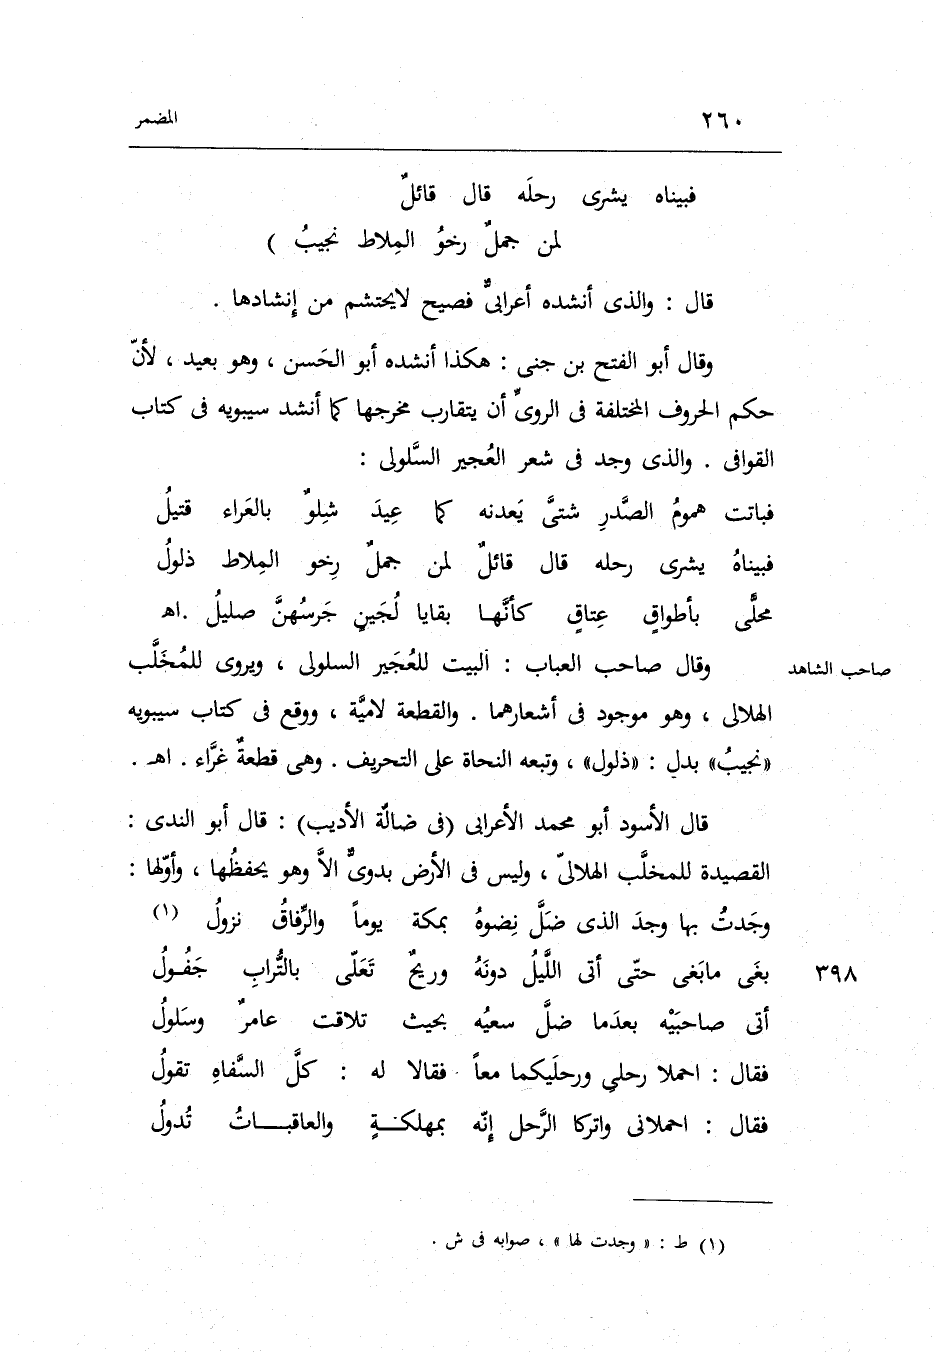 ٢٦٠ المضمر
فبيناه يشرى رحلَه قال قائلٌ
لمن جملٌ رخوُ المِلاط نجيبُ )
قال : والذى أنشده أعرابىٌّ فصيح لايحتشم من إنشادها .
وقال أبو الفتح بن جنى : هكذا أنشده أبو الحَسن ، وهو بعيد ، لأنّ
حكم الحروف المختلفة فى الروىٌّ أن يتقارب مخرجها كما أنشد سيبويه فى كتاب
القوافى . والذى وجد فى شعر العُجير السَّلولى :
فباتت همومُ الصَّدرِ شتىَّ يَعدنه كما عِيدَ شِلوٌ بالعَراء قتيلُ
فبيناهُ يشرى رحله قال قائلٌ لمن جملٌ رِخو المِلاط ذلولُ
محلَّى بأطواقٍ عِتاقٍ كأنَّهـا بقايا لُجَينٍ جَرسُهنَّ صليلُ .اهـ
صاحب الشاهد وقال صاحب العباب : ألبيت للعُجَير السلولى ، ويروى للمُخَلَّب
الهلالى ، وهو موجود فى أشعارهما . والقطعة لاميَّة ، ووقع فى كتاب سيبويه
«نجيبُ» بدل : «ذلول» ، وتبعه النحاة على التحريف . وهى قطعةٌ غرَّاء . اهـ .
قال الأسود أبو محمد الأعرابى (فى ضالّة الأديب) : قال أبو الندى :
القصيدة للمخلَّب الهلالىّ ، وليس فى الأرض بدوىٌّ الاَّ وهو يحفظُها ، وأوّلها :
وجَدتُ بها وجدَ الذى ضلَّ نِضوهُ بمكة يوماً والرِّفاقُ نزولُ (١)
٣٩٨ بغَى مابَغى حتّى أتى اللَّيلُ دونَهُ وريحٌ تَعَلّى بالتُّرابِ جَفُـولُ
أتى صاحبَيْه بعدَما ضلَّ سعيُه بحيث تلاقت عامرٌ وسَلولُ
فقال : احملا رحلي ورحلَيكما معاً فقالا له : كلَّ السَّفاهِ تقولُ
فقال : احملانى واتركا الرَّحل إنّه بمهلكـةٍ والعاقبـاتُ تُدولُ
(١) ط : « وجدت لها » ، صوابه فى ش .